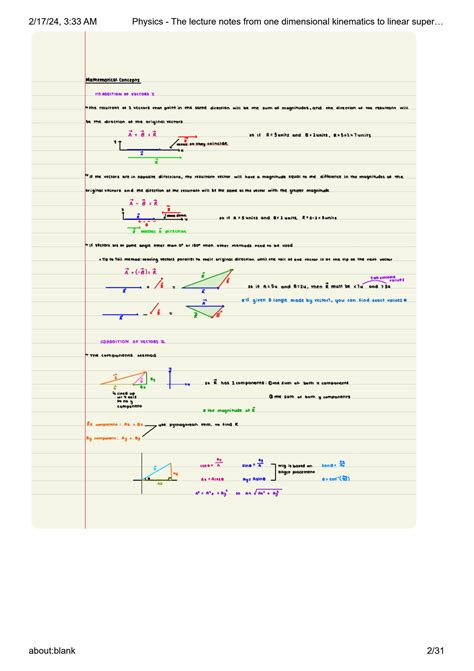 2/17/24, 3:33 AM Physics - The lecture notes from one dimensional kinematics to linear super…
Mathematical Concepts
1) ADDITION OF VECTORS
* the resultant of 2 vectors that point in the same direction will be the sum of magnitudes, and the direction of the resultant will
be the direction of the original vectors
A + B = R
so if A = 5 units and B = 2 units, R = 5+2 = 7 units
* if the vectors are in opposite directions, the resultant vector will have a magnitude equal to the difference in the magnitudes of the
original vectors and the direction of the resultant will be the same as the vector with the greater magnitude
A - B = R
so if A = 5 units and B = 2 units, R = 5-2 = 3 units
direction
* if vectors are at some angle other than 0° or 180° then other methods need to be used
tip to tail method: moving vectors parallel to their original direction until the tail of one vector is at the tip of the next vector
A + (-B) = R
so if A = 5u and B = 2u, then R must be <7u and >3u
if given θ (angle made by vectors), you can find exact values
2) ADDITION OF VECTORS
* The components method
so R has 2 components: ① the sum of both x components
② the sum of both y components
the magnitude of R
Rx component: Ax + Bx
use pythagorean thm. to find R
Ry component: Ay + By
cosθ = Ax/A sinθ = Ay/A trig is based on tanθ = Ay/Ax
angle placement
Ax = Acosθ Ay = Asinθ
about:blank 2/31